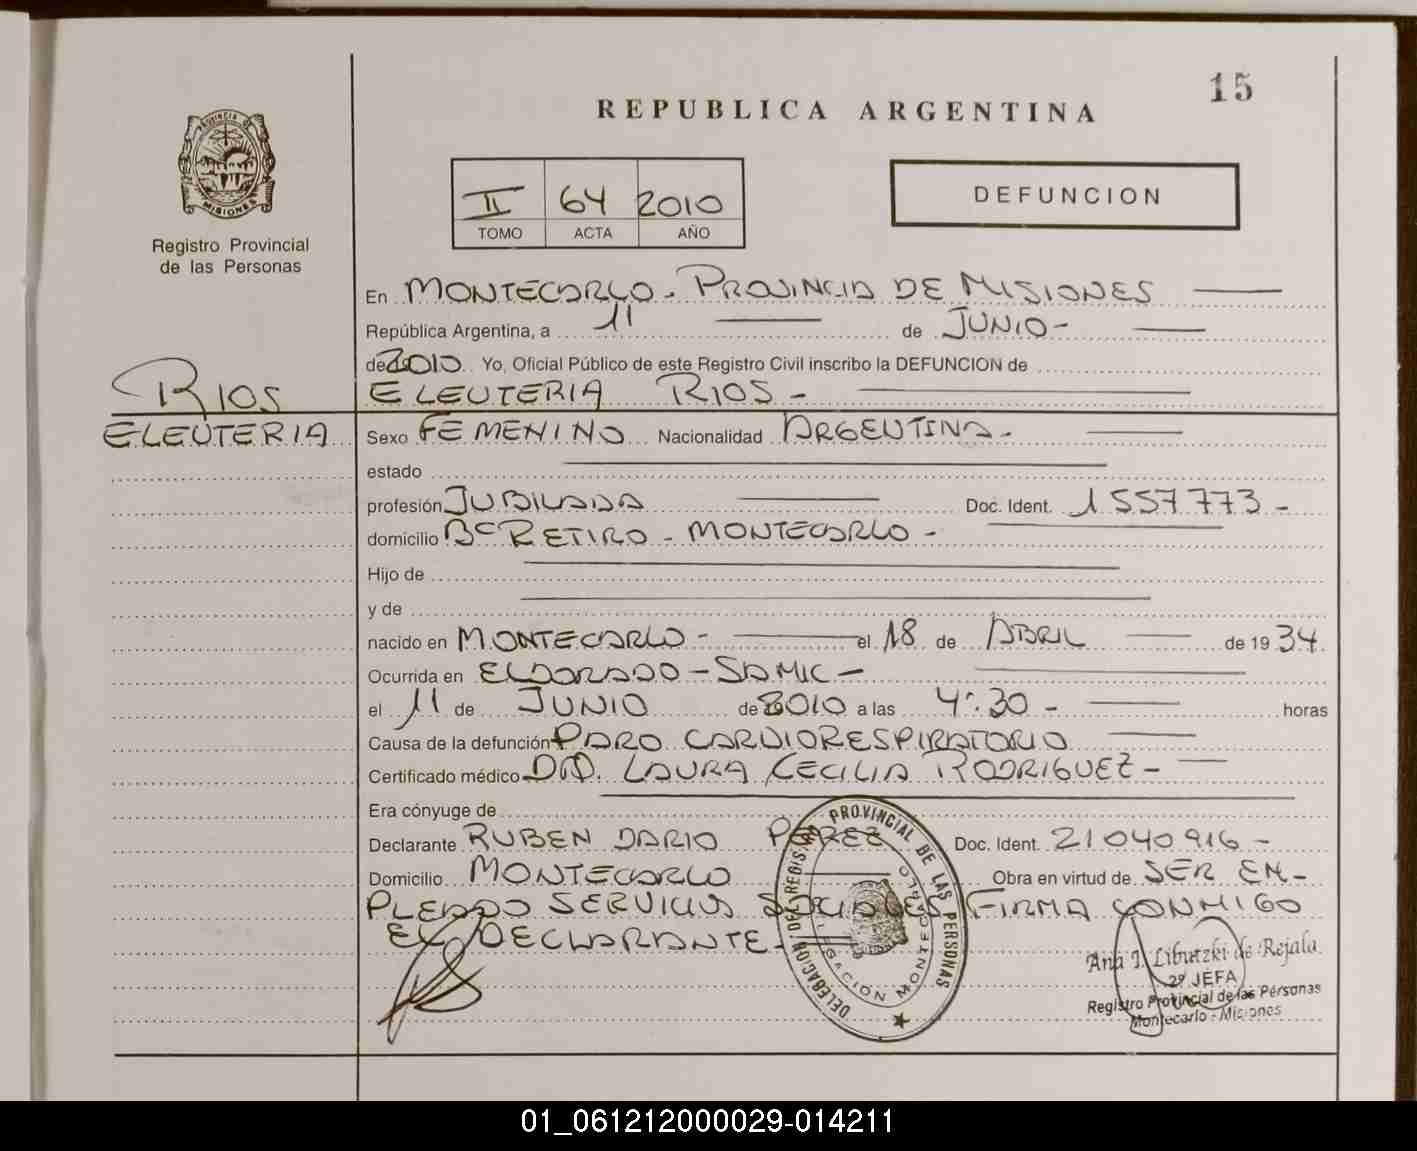 15
REPUBLICA ARGENTINA
PROVINCIA DE
MISIONES
Registro Provincial
de las Personas
II 64 2010
TOMO ACTA AÑO
DEFUNCION
En MONTECARLO - PROVINCIA DE MISIONES
República Argentina, a 11 de JUNIO -
de 2010 Yo, Oficial Público de este Registro Civil inscribo la DEFUNCION de
RIOS
ELEUTERIA RIOS -
ELEUTERIA
Sexo FEMENINO Nacionalidad ARGENTINA -
estado
profesión JUBILADA Doc. Ident. 1557773 -
domicilio Bº RETIRO - MONTECARLO -
Hijo de
y de
nacido en MONTECARLO - el 18 de ABRIL de 1934
Ocurrida en ELDORADO - SAMIC -
el 11 de JUNIO de 2010 a las 4:30 - horas
Causa de la defunción PARO CARDIORESPIRATORIO
Certificado médico DRA. LAURA CECILIA RODRIGUEZ -
Era cónyuge de
Declarante RUBEN DARIO PEREZ Doc. Ident. 21040916 -
Domicilio MONTECARLO Obra en virtud de SER EM-
PLEADO SERVICIOS SOCIALES FIRMA CONMIGO
EL DECLARANTE -
DELEGACION DEL REGISTRO PROVINCIAL DE LAS PERSONAS
DELEGACION MONTECARLO
Ana I. Libutzki de Rejala
2º JEFA
Registro Provincial de las Personas
Montecarlo - Misiones
01_061212000029-014211